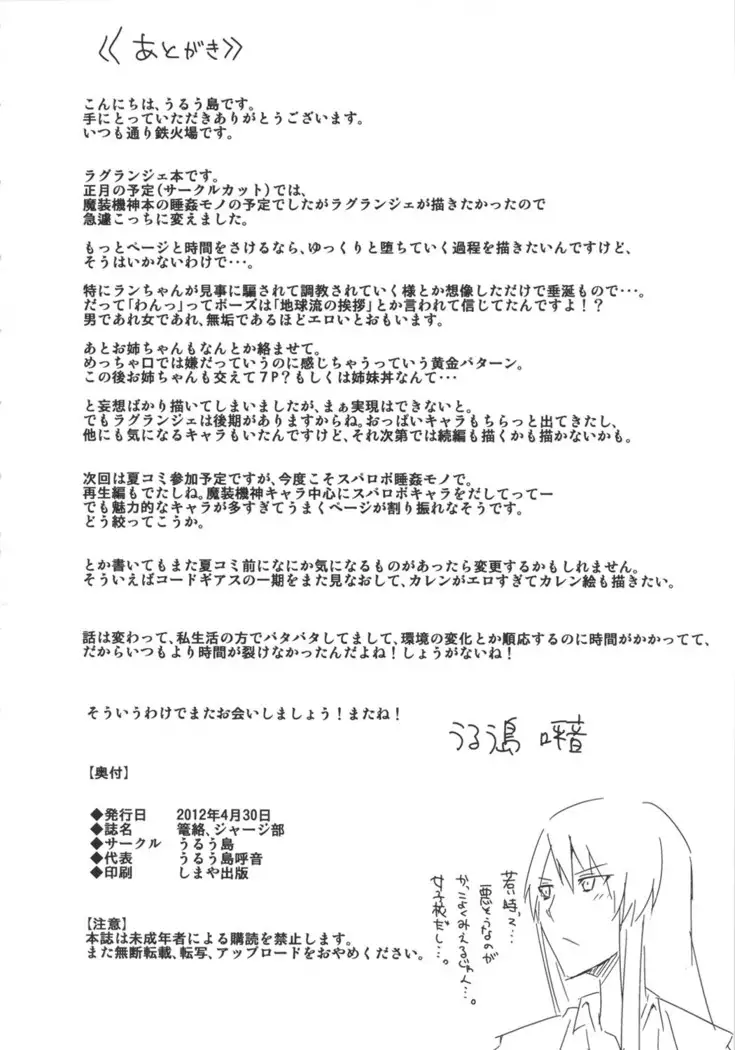 ≪あとがき≫
こんにちは、うるう島です。
手にとっていただきありがとうございます。
いつも通り鉄火場です。
ラグランジェ本です。
正月の予定（サークルカット）では、
魔装機神本の睡姦モノの予定でしたがラグランジェが描きたかったので
急遽こっちに変えました。
もっとページと時間をさけるなら、ゆっくりと堕ちていく過程を描きたいんですけど、
そうはいかないわけで・・・。
特にランちゃんが見事に騙されて調教されていく様とか想像しただけで垂涎もので・・・。
だって「わんっ」ってポーズは「地球流の挨拶」とか言われて信じてたんですよ！？
男であれ女であれ、無垢であるほどエロいとおもいます。
あとお姉ちゃんもなんとか絡ませて。
めっちゃ口では嫌だっていうのに感じちゃうっていう黄金パターン。
この後お姉ちゃんも交えて７P？もしくは姉妹丼なんて・・・
と妄想ばかり描いてしまいましたが、まぁ実現はできないと。
でもラグランジェは後期がありますからね。おっぱいキャラもちらっと出てきたし、
他にも気になるキャラもいたんですけど、それ次第では続編も描くかも描かないかも。
次回は夏コミ参加予定ですが、今度こそスパロボ睡姦モノで。
再生編もでたしね。魔装機神キャラ中心にスパロボキャラをだしてってー
でも魅力的なキャラが多すぎてうまくページが割り振れなそうです。
どう絞ってこうか。
とか書いてもまた夏コミ前になにか気になるものがあったら変更するかもしれません。
そういえばコードギアスの一期をまた見なおして、カレンがエロすぎてカレン絵も描きたい。
話は変わって、私生活の方でバタバタしてまして、環境の変化とか順応するのに時間がかかってて、
だからいつもより時間が裂けなかったんだよね！しょうがないね！
そういうわけでまたお会いしましょう！またね！
うるう島 呼音
【奥付】
◆発行日 2012年4月30日
◆誌名 篭絡、ジャージ部
◆サークル うるう島
◆代表 うるう島呼音
◆印刷 しまや出版
【注意】
本誌は未成年者による購読を禁止します。
また無断転載、転写、アップロードをおやめください。
若い時って…
悪そうなのが
かっこよくみえるじゃん…。
女子校だし…。